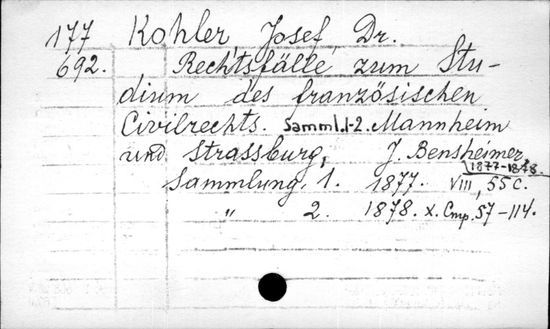 177 Kohler Josef Dr.
692. Rechtsfälle zum Stu-
dium des französischen
Civilrechts. Samml. 1-2. Mannheim
und Strassburg, J. Bensheimer
1877-1878.
Sammlung, 1. 1877. VIII, 55 c.
" 2. 1878. X. Cmp. 57-114.